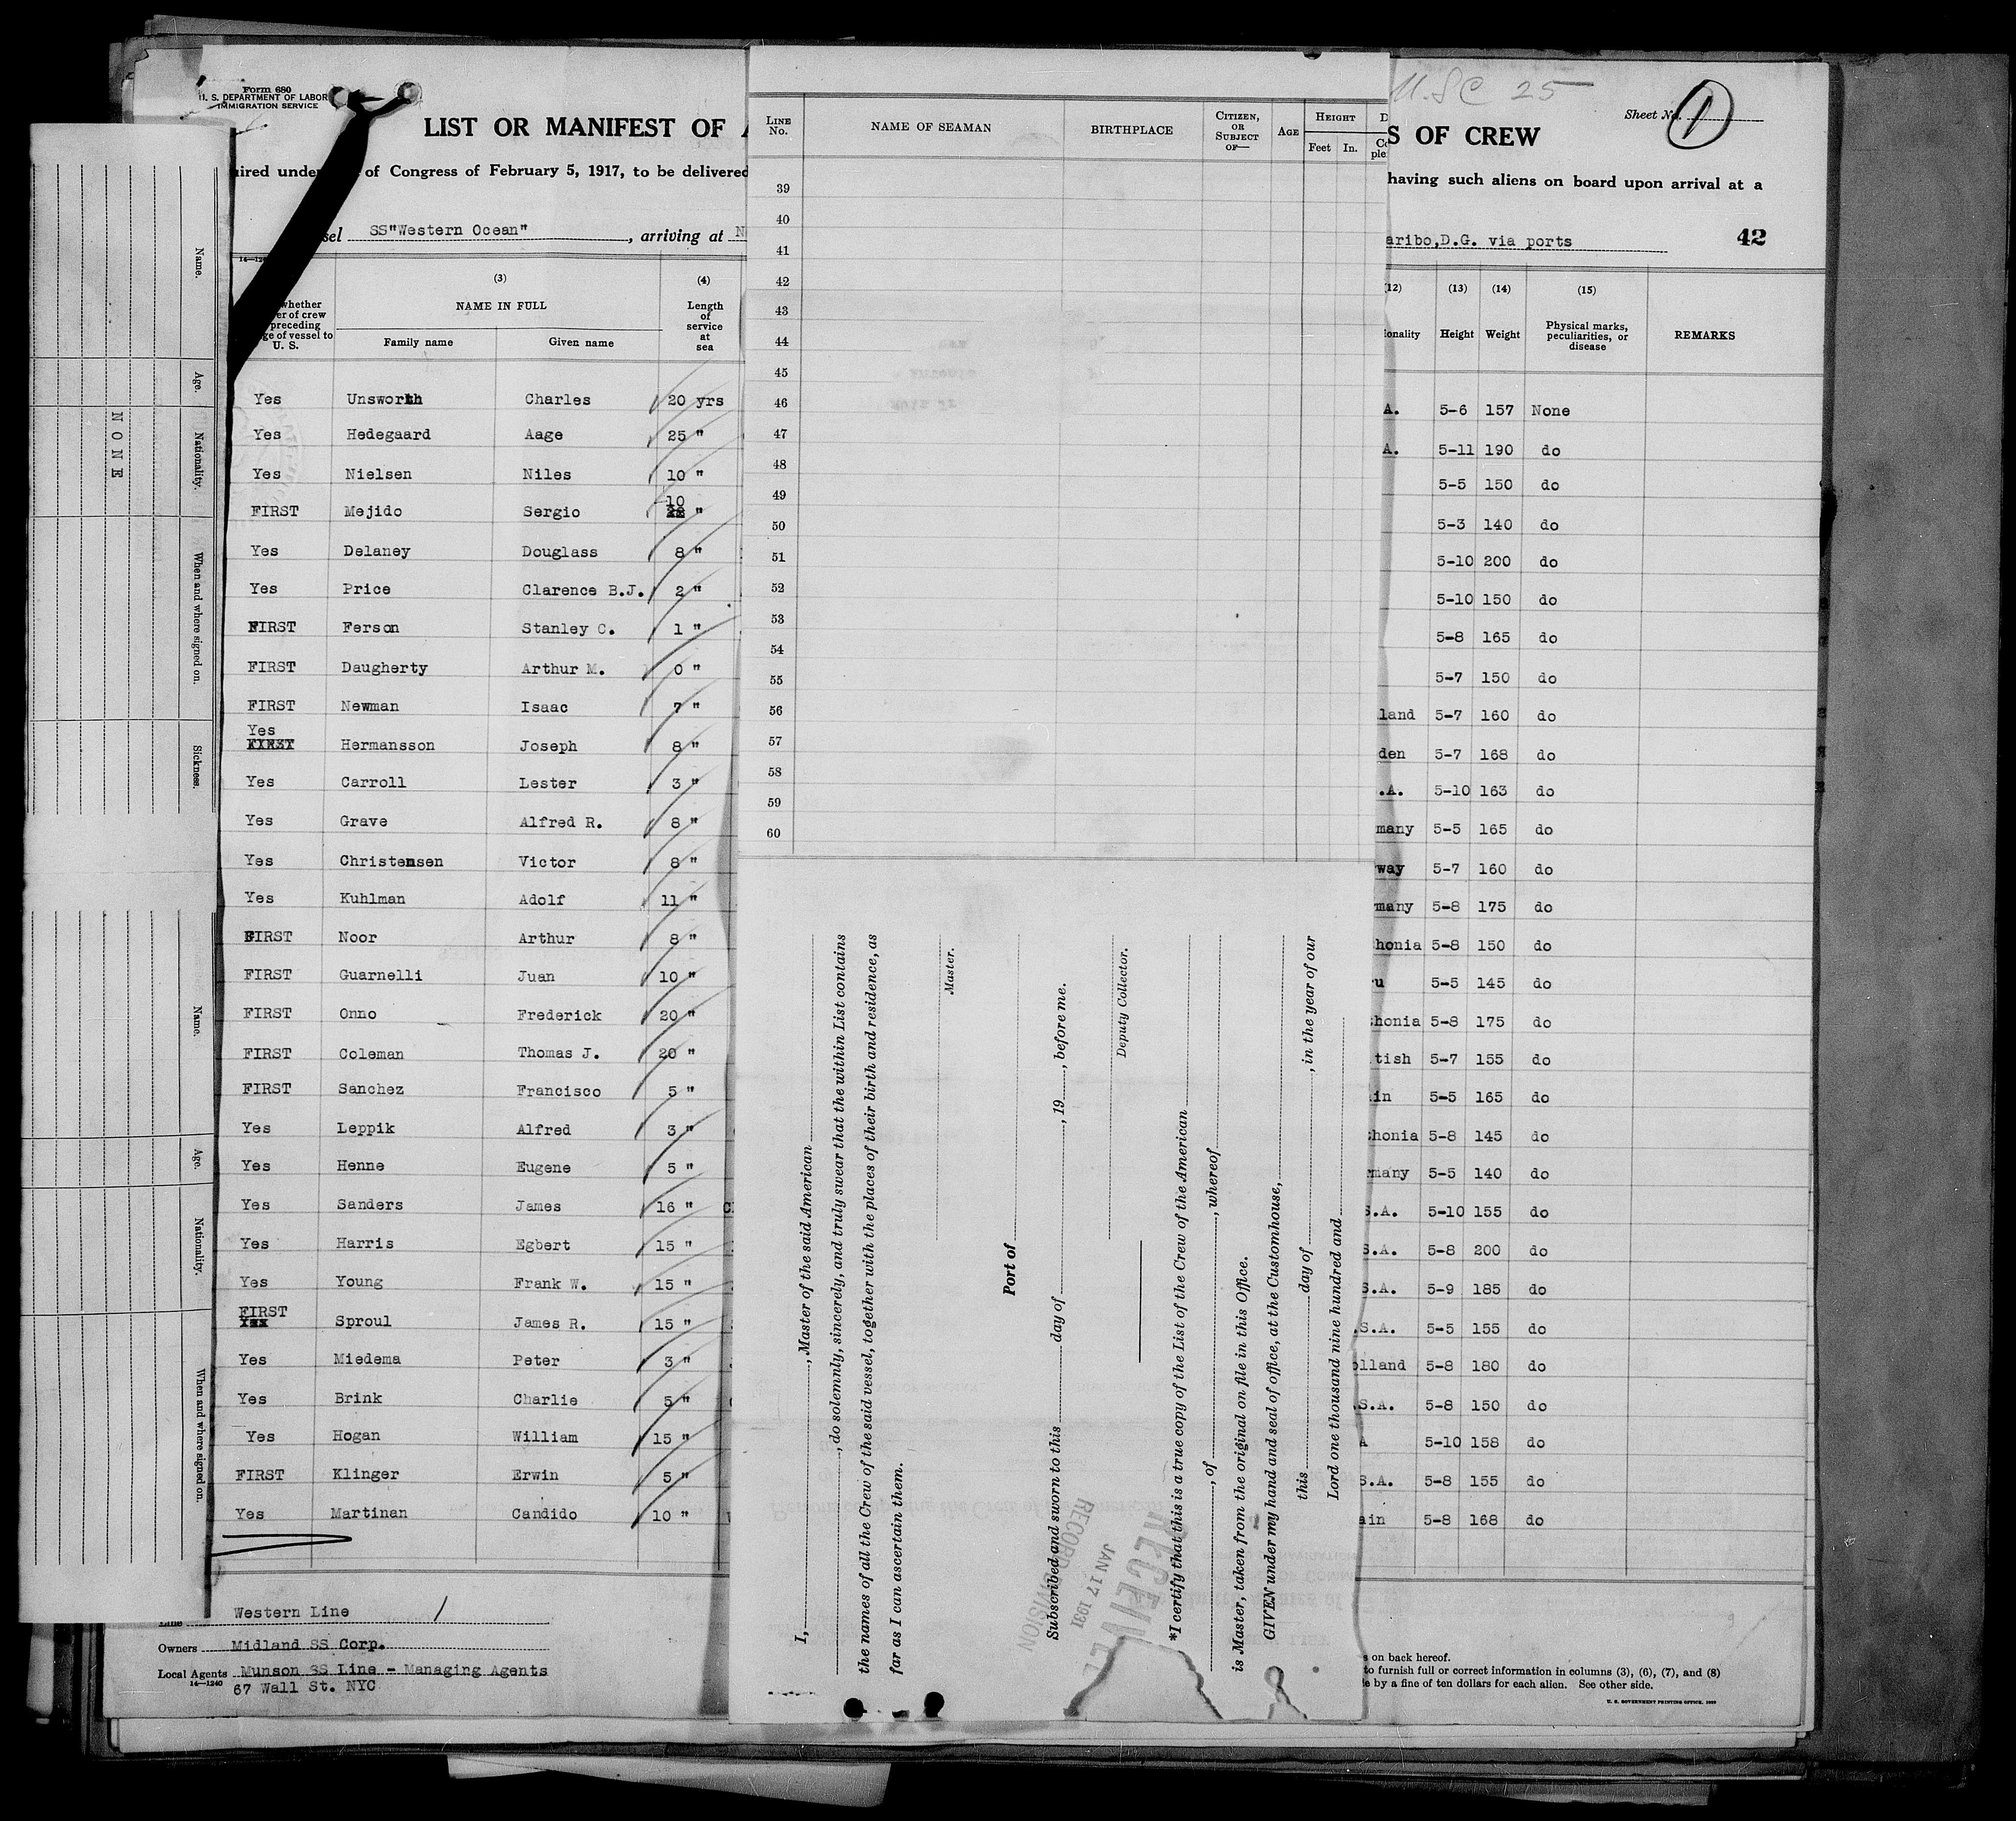 Form 680
U. S. DEPARTMENT OF LABOR
IMMIGRATION SERVICE
LIST OR MANIFEST OF
S OF CREW
Sheet No. 1
of Congress of February 5, 1917, to be delivered
having such aliens on board upon arrival at a
SS"Western Ocean" , arriving at
aribo,D.G. via ports
42
(3) (4)
whether
er of crew
preceding
ge of vessel to
U. S.
NAME IN FULL
Family name Given name
Length
of
service
at
sea
Yes Unsworth Charles 20 yrs
Yes Hedegaard Aage 25 "
Yes Nielsen Niles 10 "
FIRST Mejido Sergio 10 "
Yes Delaney Douglass 8 "
Yes Price Clarence B.J. 2 "
FIRST Ferson Stanley C. 1 "
FIRST Daugherty Arthur M. 0 "
FIRST Newman Isaac 7 "
Yes
FIRST Hermansson Joseph 8 "
Yes Carroll Lester 3 "
Yes Grave Alfred R. 8 "
Yes Christensen Victor 8 "
Yes Kuhlman Adolf 11 "
FIRST Noor Arthur 8 "
FIRST Guarnelli Juan 10 "
FIRST Onno Frederick 20 "
FIRST Coleman Thomas J. 20 "
FIRST Sanchez Francisco 5 "
Yes Leppik Alfred 3 "
Yes Henne Eugene 5 "
Yes Sanders James 16 "
Yes Harris Egbert 15 "
Yes Young Frank W. 15 "
FIRST
Yes Sproul James R. 15 "
Yes Miedema Peter 3 "
Yes Brink Charlie 5 "
Yes Hogan William 15 "
FIRST Klinger Erwin 5 "
Yes Martinan Candido 10 "
Line Western Line
Owners Midland SS Corp.
Local Agents Munson SS Line - Managing Agents
14—1240
67 Wall St. NYC
Name.
Age.
Nationality.
When and where signed on.
Sickness.
NONE
Name.
Age.
Nationality.
When and where signed on.
LINE No. NAME OF SEAMAN BIRTHPLACE CITIZEN, OR SUBJECT OF— AGE HEIGHT
Feet In.
39
40
41
42
43
44
45
46
47
48
49
50
51
52
53
54
55
56
57
58
59
60
I, , Master of the said American
, do solemnly, sincerely, and truly swear that the within List contains
the names of all the Crew of the said vessel, together with the places of their birth and residence, as
far as I can ascertain them.
Master.
Port of
Subscribed and sworn to this day of , 19 , before me.
Deputy Collector.
*I certify that this is a true copy of the List of the Crew of the American
, of , whereof
is Master, taken from the original on file in this Office.
GIVEN under my hand and seal of office, at the Customhouse,
this day of , in the year of our
Lord one thousand nine hundred and
RECEIVED
JAN 17 1931
RECORD DIVISION
(12) (13) (14) (15)
ionality Height Weight Physical marks, peculiarities, or disease REMARKS
A. 5-6 157 None
A. 5-11 190 do
5-5 150 do
5-3 140 do
5-10 200 do
5-10 150 do
5-8 165 do
5-7 150 do
land 5-7 160 do
den 5-7 168 do
.A. 5-10 163 do
many 5-5 165 do
way 5-7 160 do
many 5-8 175 do
honia 5-8 150 do
ru 5-5 145 do
thonia 5-8 175 do
tish 5-7 155 do
in 5-5 165 do
thonia 5-8 145 do
rmany 5-5 140 do
S.A. 5-10 155 do
S.A. 5-8 200 do
S.A. 5-9 185 do
.S.A. 5-5 155 do
olland 5-8 180 do
.S.A. 5-8 150 do
A 5-10 158 do
S.A. 5-8 155 do
ain 5-8 168 do
s on back hereof.
to furnish full or correct information in columns (3), (6), (7), and (8)
le by a fine of ten dollars for each alien. See other side.
U. S. GOVERNMENT PRINTING OFFICE